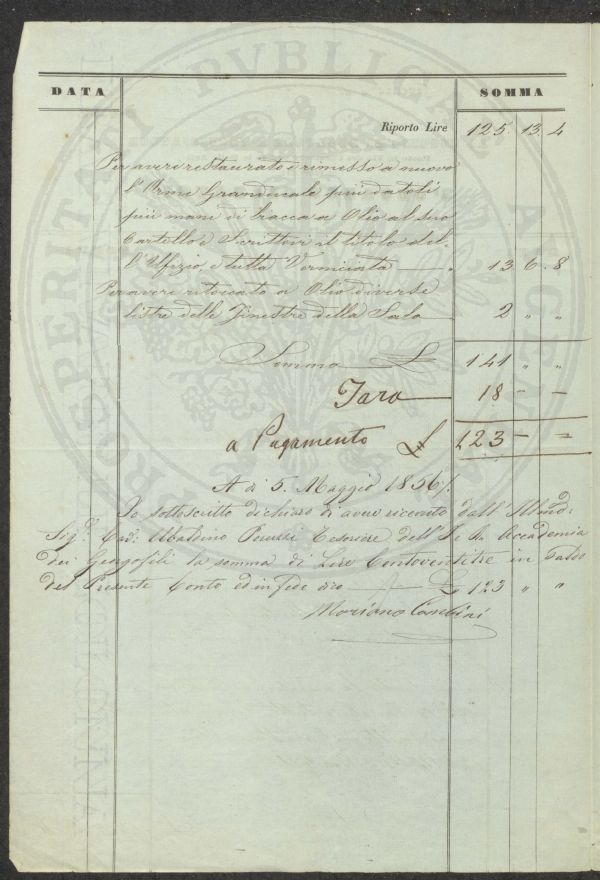 DATA SOMMA
Riporto Lire 125. 13. 4
Per avere restaurato e rimesso a nuovo
l'Arme Granducale più datoli
più mani di bracca a Olio al suo
Cartello e Scrittovi il titolo del-
l'Uffizio, e tutta Verniciata 13 6 8
Per avere ritoccato a Olio diverse
listre delle Finestre della Sala 2 " "
Somma £ 141 " "
Tara 18 – –
a Pagamento £ 123 – –
A dì 5. Maggio 1856
Io sottoscritto dichiaro di avere ricevuto dall'
Sig. Cav. Ubaldino Peruzzi Tesoriere dell'I e R. Accademia
dei Georgofili la somma di Lire Centoventitre in Saldo
del Presente Conto ed in fede dico £ 123 " "
Mariano
PROSPERITATI PVBLICAE AVGENDAE